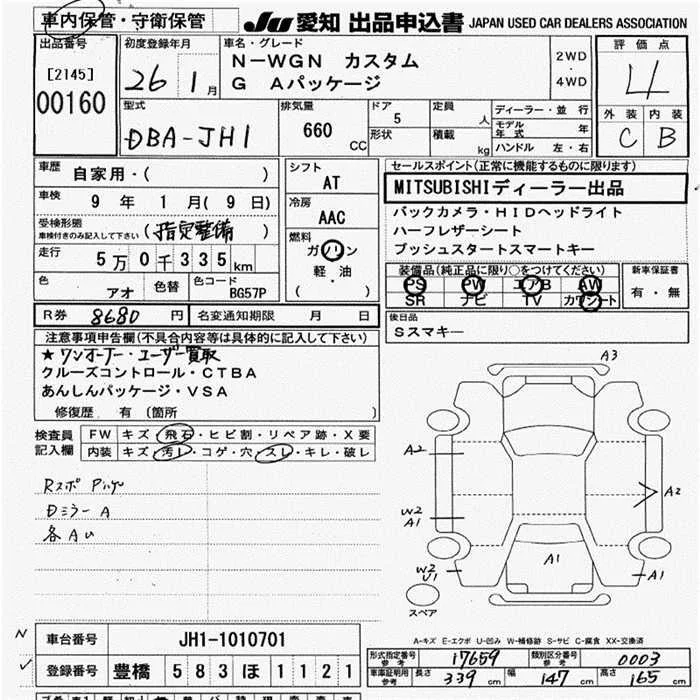 車内保管・守衛保管
JU 愛知 出品申込書 JAPAN USED CAR DEALERS ASSOCIATION
出品番号
[2145]
00160
初度登録年月
26 1月
車名・グレード
N-WGN カスタム
G Aパッケージ
2WD
・
4WD
評価点
4
外装 内装
C B
型式
DBA-JH1
排気量
660
CC
ドア
5
形状
定員
人
積載
kg
ディーラー・並行
モデル年式 年
ハンドル 左・右
車歴
自家用・( )
車検
9年 1月(9日)
受検形態
車検付きのみ記入して下さい
(指定整備)
走行
5万0千335km
色
アオ
色替
色コード
BG57P
シフト
AT
冷房
AAC
燃料
ガソリン
軽・油
( )
セールスポイント(正常に機能するものに限ります)
MITSUBISHIディーラー出品
バックカメラ・HIDヘッドライト
ハーフレザーシート
プッシュスタートスマートキー
装備品(純正品に限り○をつけてください)
PS PW エアB AW
SR ナビ TV カワシート
新車保証書
有・無
R券 8680円
名変通知期限 月 日
後日品
Sスマキー
注意事項申告欄(不具合内容等は具体的に記入して下さい)
★ワンオーナー・ユーザー買取
クルーズコントロール・CTBA
あんしんパッケージ・VSA
修復歴 有 (箇所 )
検査員記入欄
FW キズ・飛石・ヒビ割・リペア跡・X要
内装 キズ・汚レ・コゲ・穴・スレ・キレ・破レ
Dミラー A
各AU
A3
A2
A2
W2
A1
A1
W2
U1
A1
スペア
A-キズ E-エクボ U-凹み W-補修跡 S-サビ C-腐食 XX-交換済
N
車台番号
JH1-1010701
登録番号
豊橋 583 ほ 1121
型式指定番号
参考
17659
類別区分番号
参考
0003
車庫証明用
参考
長さ 339cm
幅 147cm
高さ 165cm